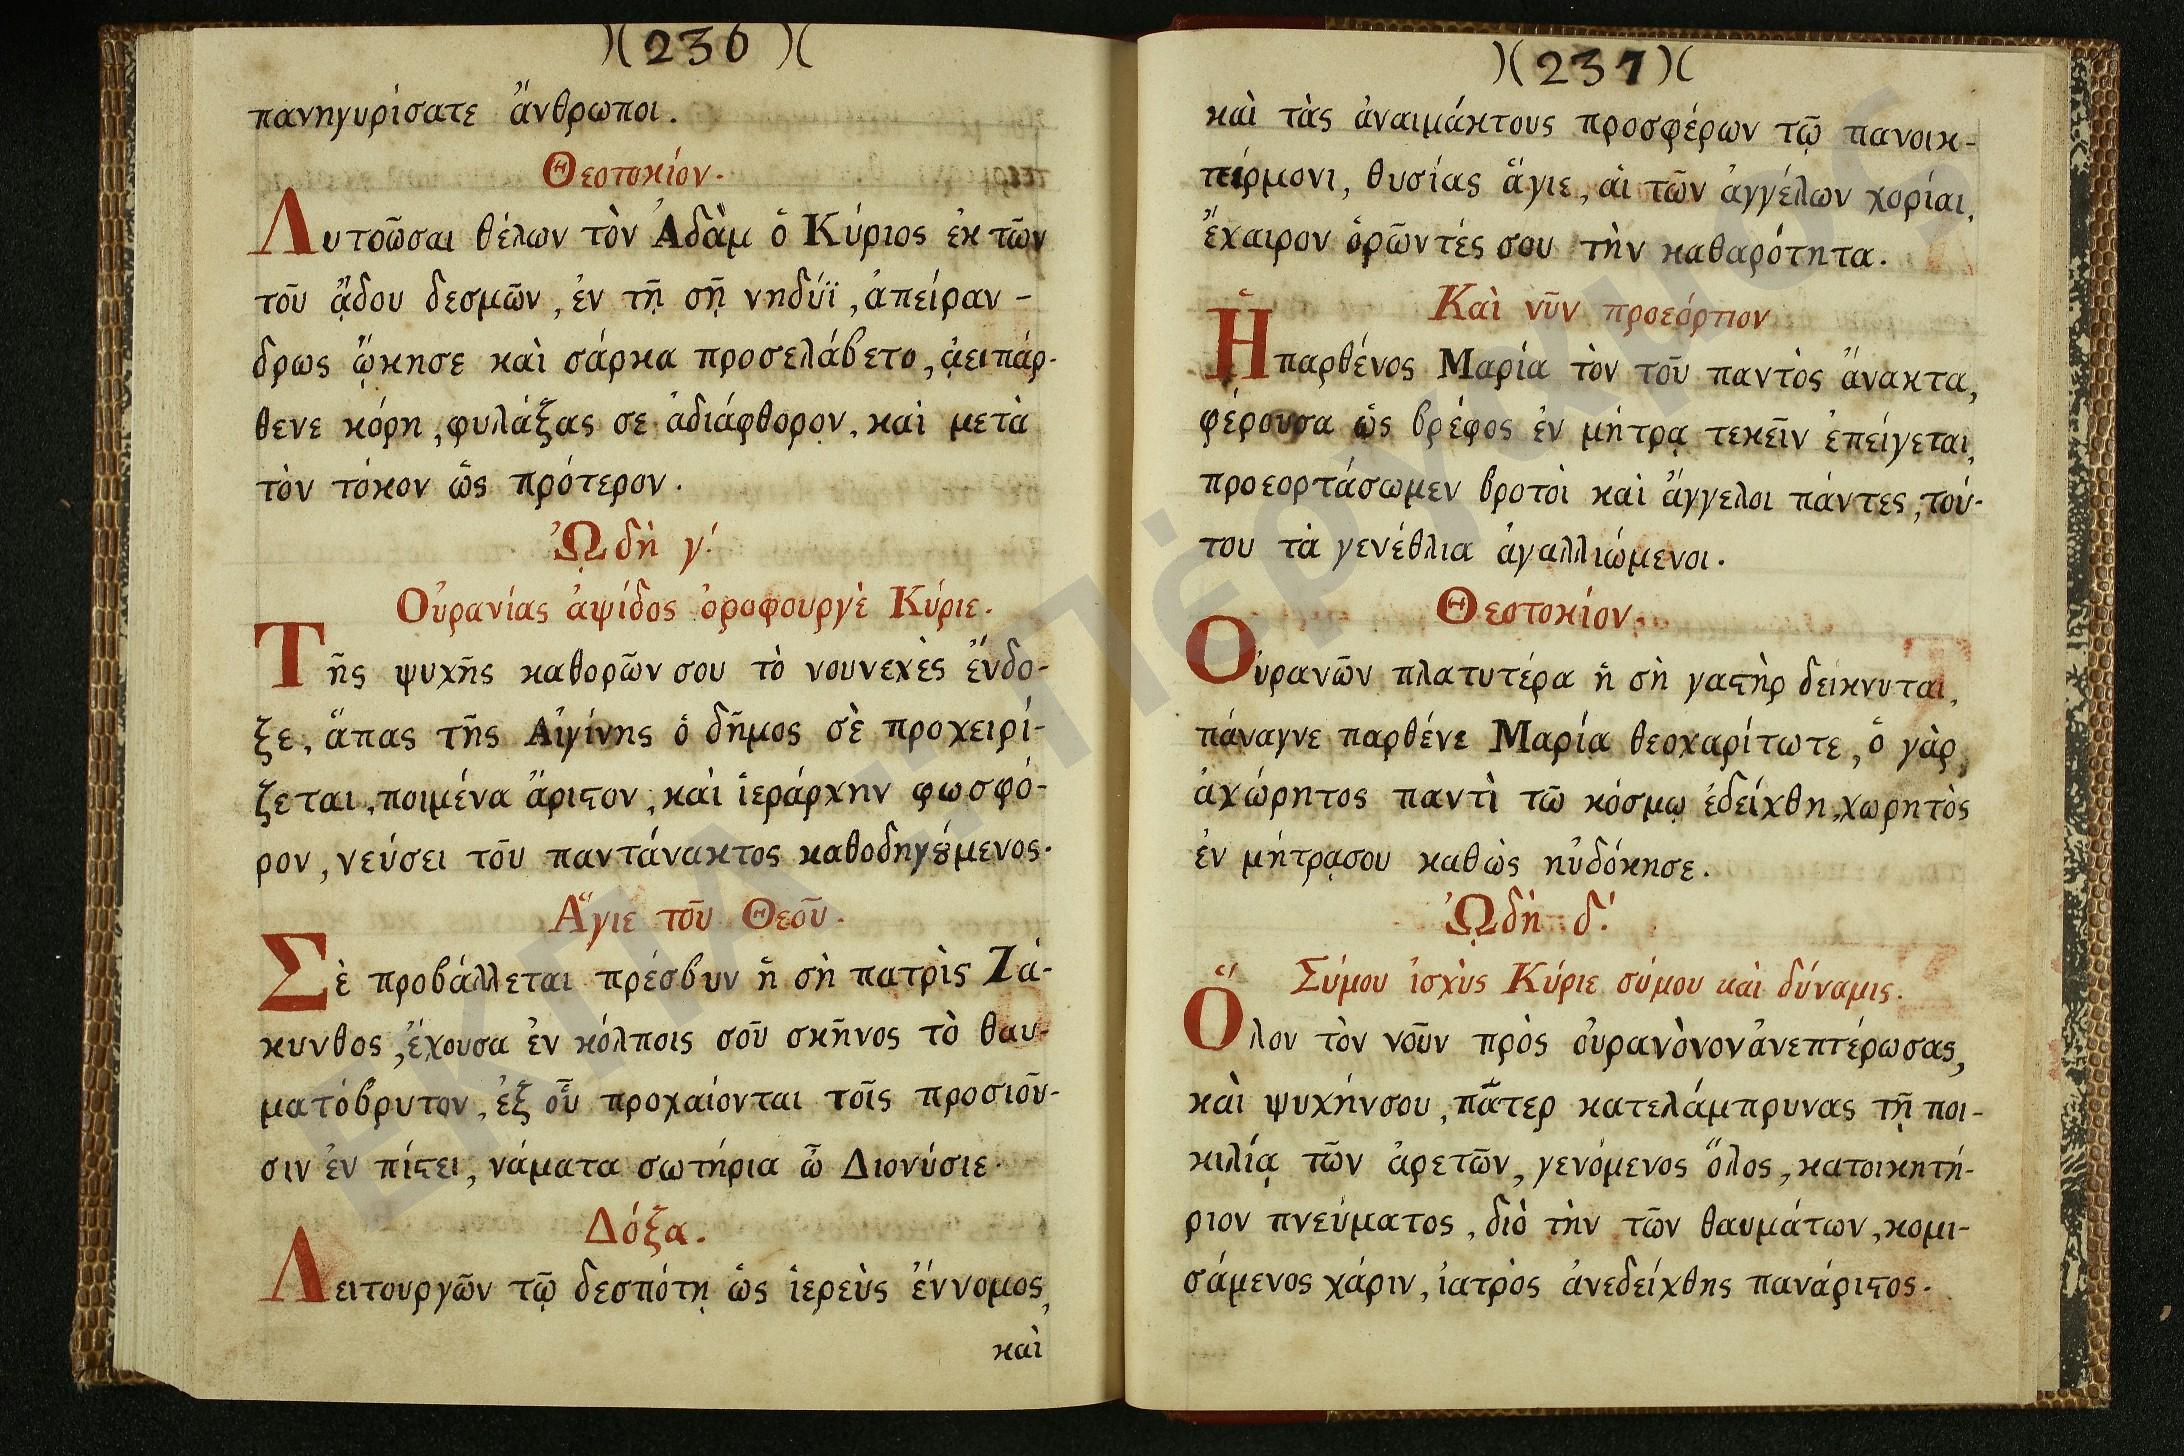 )( 236 )(
πανηγυρίσατε ἄνθρωποι.
Θεοτοκίον.
Λυτρῶσαι θέλων τὸν Ἀδὰμ ὁ Κύριος ἐκ τῶν
τοῦ ᾅδου δεσμῶν, ἐν τῇ σῇ νηδύϊ, ἀπειράν-
δρως ᾤκησε καὶ σάρκα προσελάβετο, ἀειπάρ-
θενε κόρη, φυλάξας σε ἀδιάφθορον, καὶ μετὰ
τὸν τόκον ὡς πρότερον.
ᾨδὴ γ΄.
Οὐρανίας ἁψίδος ὀροφουργὲ Κύριε.
Τῆς ψυχῆς καθορῶν σου τὸ νουνεχὲς ἔνδο-
ξε, ἅπας τῆς Αἰγίνης ὁ δῆμος σὲ προχειρί-
ζεται, ποιμένα ἄριϛον, καὶ ἱεράρχην φωσφό-
ρον, νεύσει τοῦ παντάνακτος καθοδηγȣ́μενος.
Ἅγιε τοῦ Θεοῦ.
Σὲ προβάλλεται πρέσβυν ἡ σὴ πατρὶς Ζά-
κυνθος, ἔχουσα ἐν κόλποις σοῦ σκῆνος τὸ θαυ-
ματόβρυτον, ἐξ οὗ προχαίονται τοῖς προσιοῦ-
σιν ἐν πίϛει, νάματα σωτήρια ὦ Διονύσιε.
Δόξα.
Λειτουργῶν τῷ δεσπότῃ ὡς ἱερεὺς ἔννομος,
καὶ
)( 237 )(
καὶ τὰς ἀναιμάκτους προσφέρων τῷ πανοικ-
τείρμονι, θυσίας ἅγιε, αἱ τῶν ἀγγέλων χορίαι,
ἔχαιρον ὁρῶντές σου τὴν καθαρότητα.
Καὶ νῦν προεόρτιον
Ἡ παρθένος Μαρία τὸν τοῦ παντὸς ἄνακτα,
φέρουσα ὡς βρέφος ἐν μήτρᾳ τεκεῖν ἐπείγεται,
προεορτάσωμεν βροτοὶ καὶ ἄγγελοι πάντες, τού-
του τὰ γενέθλια ἀγαλλιώμενοι.
Θεοτοκίον.
Οὐρανῶν πλατυτέρα ἡ σὴ γαϛὴρ δείκνυται,
πάναγνε παρθένε Μαρία θεοχαρίτωτε, ὁ γὰρ,
ἀχώρητος παντὶ τῶ κόσμῳ ἐδείχθη, χωρητὸς
ἐν μήτρᾳσου καθὼς ηὐδόκησε.
ᾨδὴ δ΄.
Σύμου ἰσχὺς Κύριε σύμου καὶ δύναμις.
Ὅλον τὸν νοῦν πρὸς οὐρανὸνονἀνεπτέρωσας,
καὶ ψυχήνσου, πᾶτερ κατελάμπρυνας τῇ ποι-
κιλίᾳ τῶν ἀρετῶν, γενόμενος ὅλος, κατοικητή-
ριον πνεύματος, διὸ τὴν τῶν θαυμάτων, κομι-
σάμενος χάριν, ἰατρὸς ἀνεδείχθης πανάριϛος.